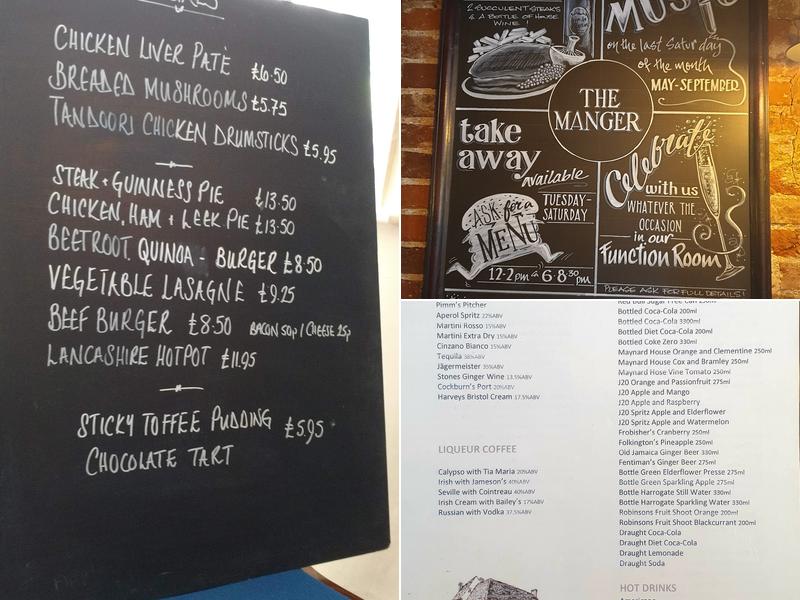 CHICKEN LIVER PATÈ £6.50
BREADED MUSHROOMS £5.75
TANDOORI CHICKEN DRUMSTICKS £5.95
STEAK + GUINNESS PIE £13.50
CHICKEN, HAM + LEEK PIE £13.50
BEETROOT, QUINOA - BURGER £8.50
VEGETABLE LASAGNE £9.25
BEEF BURGER £8.50 BACON 50p / CHEESE 25p
LANCASHIRE HOTPOT £11.95
STICKY TOFFEE PUDDING £5.95
CHOCOLATE TART
2 SUCCULENT STEAKS
& A BOTTLE OF HOUSE
WINE!
MUSIC
on the last Saturday
of the month
MAY-SEPTEMBER
THE
MANGER
take
away
available
TUESDAY-
SATURDAY
ASK for a
MENU
12-2pm & 6-8.30pm
Celebrate
with us
WHATEVER THE
OCCASION
in our
Function Room
PLEASE ASK FOR FULL DETAILS!
Pimm's Pitcher
Aperol Spritz 22%ABV
Martini Rosso 15%ABV
Martini Extra Dry 15%ABV
Cinzano Bianco 15%ABV
Tequila 38%ABV
Jägermeister 35%ABV
Stones Ginger Wine 13.5%ABV
Cockburn's Port 20%ABV
Harveys Bristol Cream 17.5%ABV
LIQUEUR COFFEE
Calypso with Tia Maria 20%ABV
Irish with Jameson's 40%ABV
Seville with Cointreau 40%ABV
Irish Cream with Bailey's 17%ABV
Russian with Vodka 37.5%ABV
Red Bull Sugar Free Can 250ml
Bottled Coca-Cola 200ml
Bottled Coca-Cola 3300ml
Bottled Diet Coca-Cola 200ml
Bottled Coke Zero 330ml
Maynard House Orange and Clementine 250ml
Maynard House Cox and Bramley 250ml
Maynard Hose Vine Tomato 250ml
J20 Orange and Passionfruit 275ml
J20 Apple and Mango
J20 Apple and Raspberry
J20 Spritz Apple and Elderflower
J20 Spritz Apple and Watermelon
Frobisher's Cranberry 250ml
Folkington's Pineapple 250ml
Old Jamaica Ginger Beer 330ml
Fentiman's Ginger Beer 275ml
Bottle Green Elderflower Presse 275ml
Bottle Green Sparkling Apple 275ml
Bottle Harrogate Still Water 330ml
Bottle Harrogate Sparkling Water 330ml
Robinsons Fruit Shoot Orange 200ml
Robinsons Fruit Shoot Blackcurrant 200ml
Draught Coca-Cola
Draught Diet Coca-Cola
Draught Lemonade
Draught Soda
HOT DRINKS